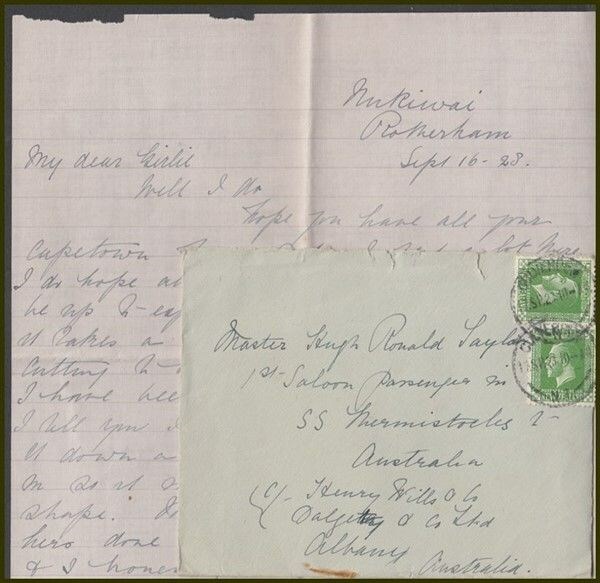 Rotherham
Sept 16-23.
My dear Girlie
Well I do
hope you have all your
Capetown
I do hope
be up to
it takes a
cutting
I have
I tell you
it down a
in so it
shape.
hero done
& I
Master Hugh Ronald Taylor
1st Saloon Passenger in
SS Themistocles to
Australia
C/- Henry Wills & Co
Dalgety & Co Ltd
Albany
Australia.